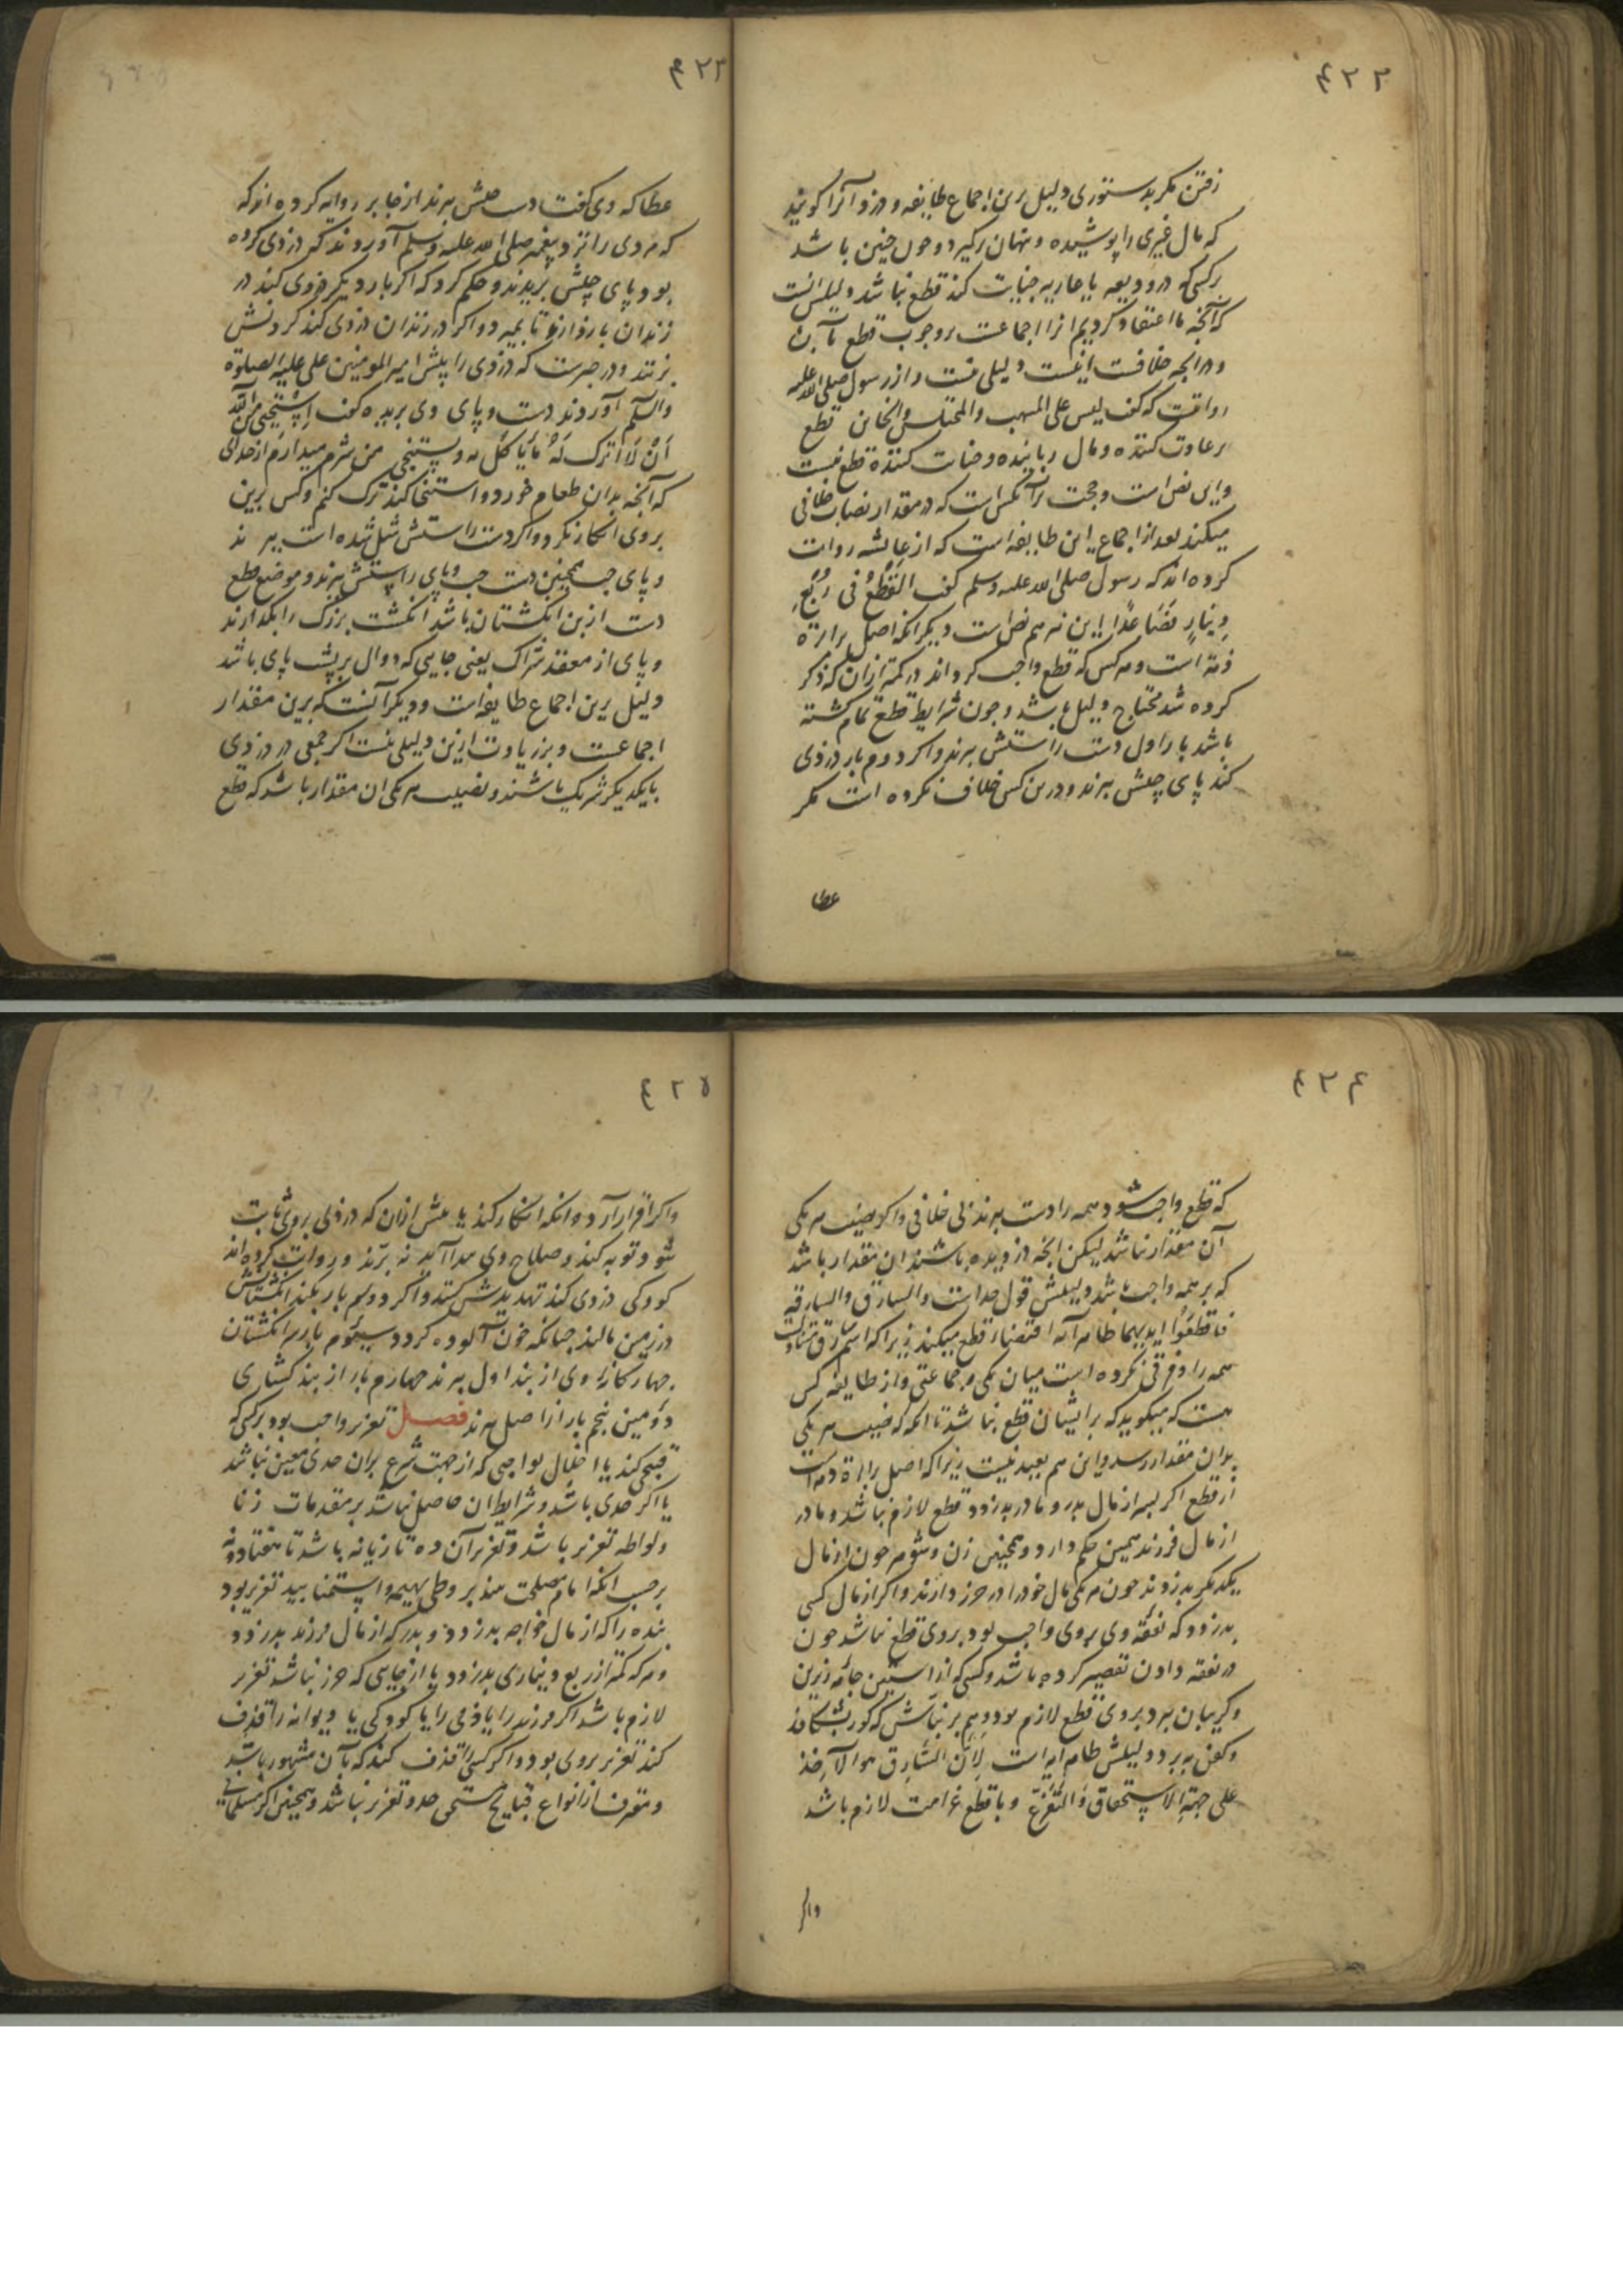 ۴۲۲
رفتن مگر بدستوری دلیل برین اجماع طایفه و دزد آنرا کویند
که مال غیری را پوشیده و پنهان برگیرد و چون چنین باشد
برکسی که در ودیعه یا عاریه خیانت کند قطع نباشد دلیلش انست
که آنچه ما اعتقاد کردیم انرا اجماعست بر وجوب قطع بآن
و در آنچه خلافست دلیلی نیست و از رسول صلی الله علیه
روایتست که گفت لیس علی المنتهب والمختلس والخاین قطع
بر غارت کننده و مال رباینده و خیانت کننده قطع نیست
و این نص است و حجت بر آنکس است که در مقدار نصاب خلافی
میکند بعد از اجماع این طایفه است که از عایشه روایت
کرده اند که رسول صلی الله علیه وسلم گفت القَطْعُ فی رُبُعِ
دِینارٍ فَصَاعدًا این نیز هم نص است و دیگر انکه اصل برارة
ذمة است و هر کس که قطع واجب کرداند در کمتر ازان که ذکر
کرده شد محتاج دلیل باشد و چون شرایط قطع تمام گشته
باشد بار اول دست راستش ببرند و اکر دوم بار دزدی
کند پای چپش ببرند و درین کس خلاف نکرده است مکر
عطا
۴۲۳
عطا که وی گفت دست چپش ببرند از جابر روایه کرده اند که
که مردی را نزد پیغمبر صلی الله علیه وسلم آوردند که دزدی کرده
بود پای چپش بریدند و حکم کرد که اکر بار دیکر دزدی کند در
زندان بازدارند تا بمیرد و اکر در زندان دزدی کند کردنش
بزنند و در خبرست که دزدی را پیش امیر المومنین علی علیه الصلوة
والسلم آوردند دست و پای وی بریده گفت اِنّی اَسْتَحْیِی مِنَ اللّه
اَنْ لَا اَترک لَهُ مَا یَاکُل به و یستنجی من شرم میدارم از خدای
که آنچه بدان طعام خورد و استنجا کند ترک کنم و کس برین
بر وی انکار نکرد و اکر دست راستش شل شده است ببرند
و پای چپ همچنین دست چپ و پای راستش ببرند و موضع قطع
دست از بن انکشتان باشد انکشت بزرک را بکذارند
و پای از معقد شراک یعنی جایی که دوال بر پشت پای باشد
دلیل برین اجماع طایفه است و دیکر آنست که برین مقدار
اجماعست و بر زیادت ازین دلیلی نیست اکر جمعی در دزدی
بایکدیکر شریک باشند و نصیب هر یکی ان مقدار باشد که قطع
۴۲۴
که قطع واجب شود همه را دست ببرند بی خلافی و اکر نصیب هر یکی
آن مقدار نباشد لیکن آنچه دزدیده باشند ان مقدار باشد
که بر همه واجب باشد دلیلش قول خداست والسارق والسارقة
فاقطعُوا ایدیهما ظاهر آیه اقتضاء قطع میکند زیرا که اسم سارق متناولست
همه را و فرقی نکرده است میان یکی و جماعتی و از طایفه کس
هست که میکوید که بر ایشان قطع نباشد تا انکه که نصیب هر یکی
بدان مقدار رسد و این هم بعید نیست زیرا که اصل براءة ذمه است
از قطع اکر پسر از مال پدر و مادر بدزدد قطع لازم نباشد و مادر
از مال فرزند همین حکم دارد و همچنین زن و شوهر چون از مال
یکدیکر بدزدند چون هر یکی مال خود را در حرز دارند و اکر از مال کسی
بدزدد که نفقه وی بروی واجب بود بروی قطع نباشد چون
در نفقه دادن تقصیر کرده باشد و کسی که از استین جامه زیرین
و کریبان ببرد بروی قطع لازم بود و هم بر نباش که کور بشکافد
و کفن ببرد دلیلش ظاهر آیه است لِاَنَّ السَّارِق هو الآخِذ
علی جهةِ الاستخفاق وَالتَّفَزُّع و با قطع غرامت لازم باشد
واکر
۴۲۵
واکر اقرار آرد و انکه انکار کند یا پیش ازان که دزدی بروی ثابت
شود توبه کند و صلاح وی پیدا آید نه برند و روایت کرده اند
کودکی دزدی کند تهدیدش کنند و اکر دوم بار بکند انکشتانش
در زمین مالند چنانکه خون آلوده کردد سیوم بار سر انکشتان
چهارکانه وی از بند اول ببرند چهارم بار از بند کشاری
دومین پنجم بار از اصل ببرند فصل تعزیر واجب بود بر کسی که
قبحی کند یا اخلال بواجبی که از جهت شرع بران حدی معین نباشد
یا اکر حدی باشد و شرایط ان حاصل نباشد بر مقدمات زنا
و لواطه تعزیر باشد و تعزیر آن ده تازیانه باشد تا هفتاد و نه
بر حسب انکه امام مصلحت بیند بر وطی بهیمه و استمنا بید تعزیر بود
بنده را که از مال خواجه بدزدد و پدر که از مال فرزند بدزدد
و هر که کمتر از ربع دیناری بدزدد یا از جایی که حرز نباشد تعزیر
لازم باشد اکر فرزند را یا ذمی را یا کودکی یا دیوانه را قذف
کند تعزیر بروی بود و اکر کسی را قذف کند که بآن مشهور باشد
و معرف از انواع قبایح مستحق حد و تعزیر نباشد و همچنین اکر مسلمانی